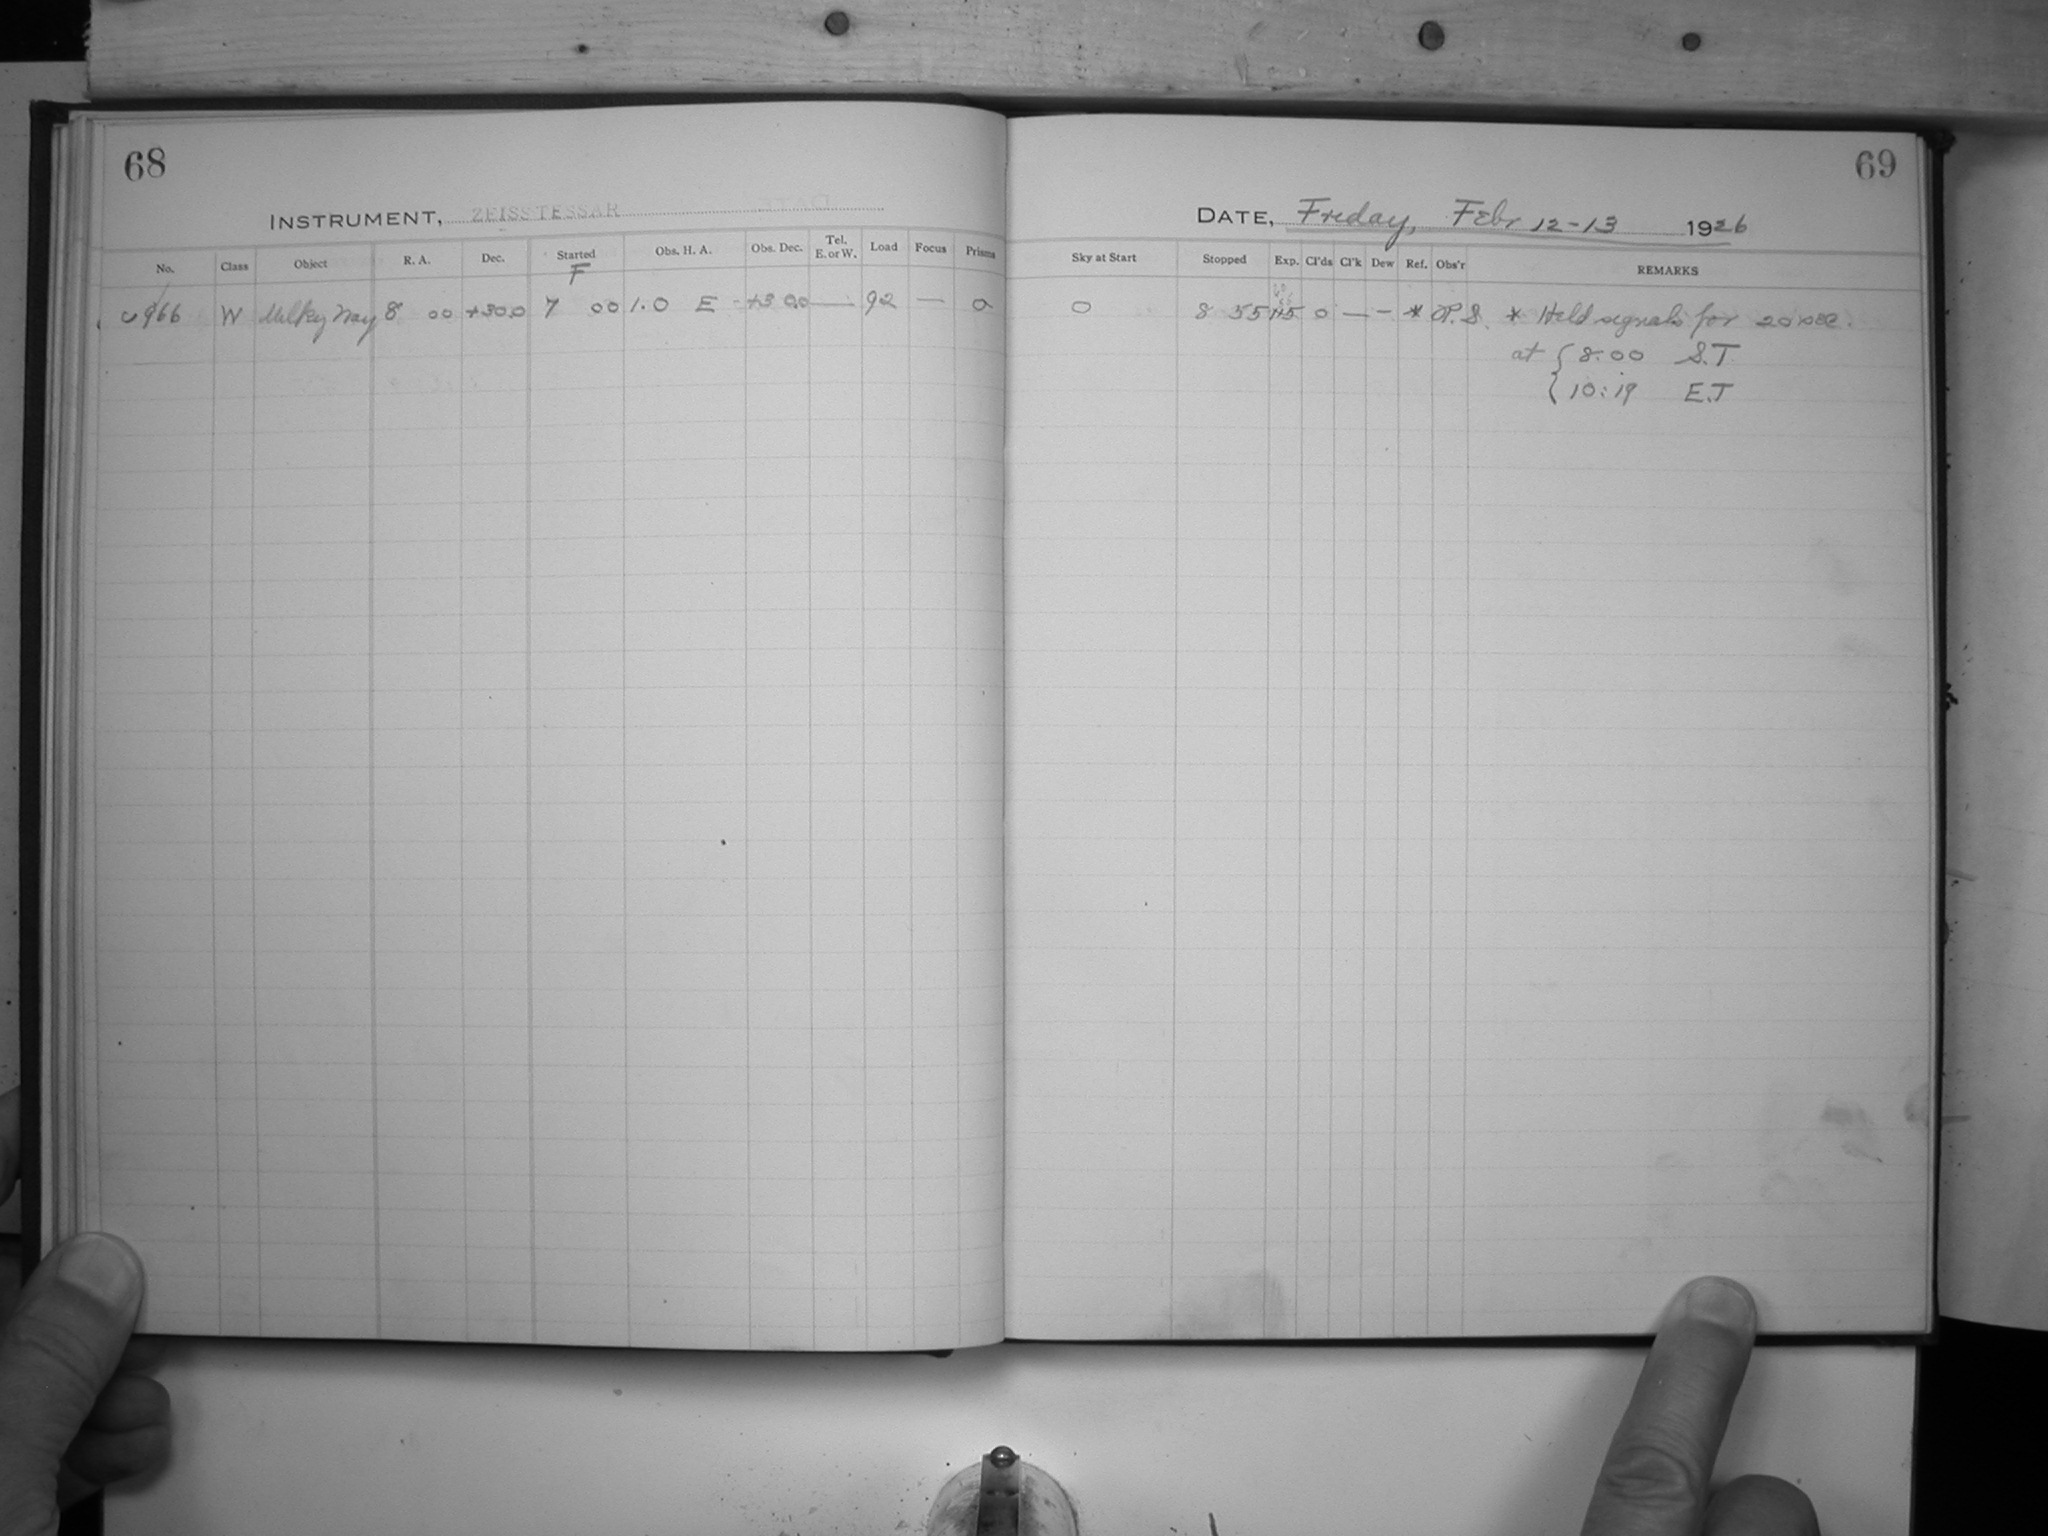 68
INSTRUMENT, ZEISS TESSAR
No. Class Object R. A. Dec. Started Obs. H. A. Obs. Dec. Tel. E. or W. Load Focus Prisms
F
966 W Milky Way 8 00 +30.0 7 00 1.0 E +30.0 — 92 — 0
69
DATE, Friday, Febr 12-13 1926
Sky at Start Stopped Exp. Cl'ds Cl'k Dew Ref. Obs'r REMARKS
0 8 55 115 0 — — * * Held signals for 20 sec.
at { 8:00 S.T
{ 10:19 E.T